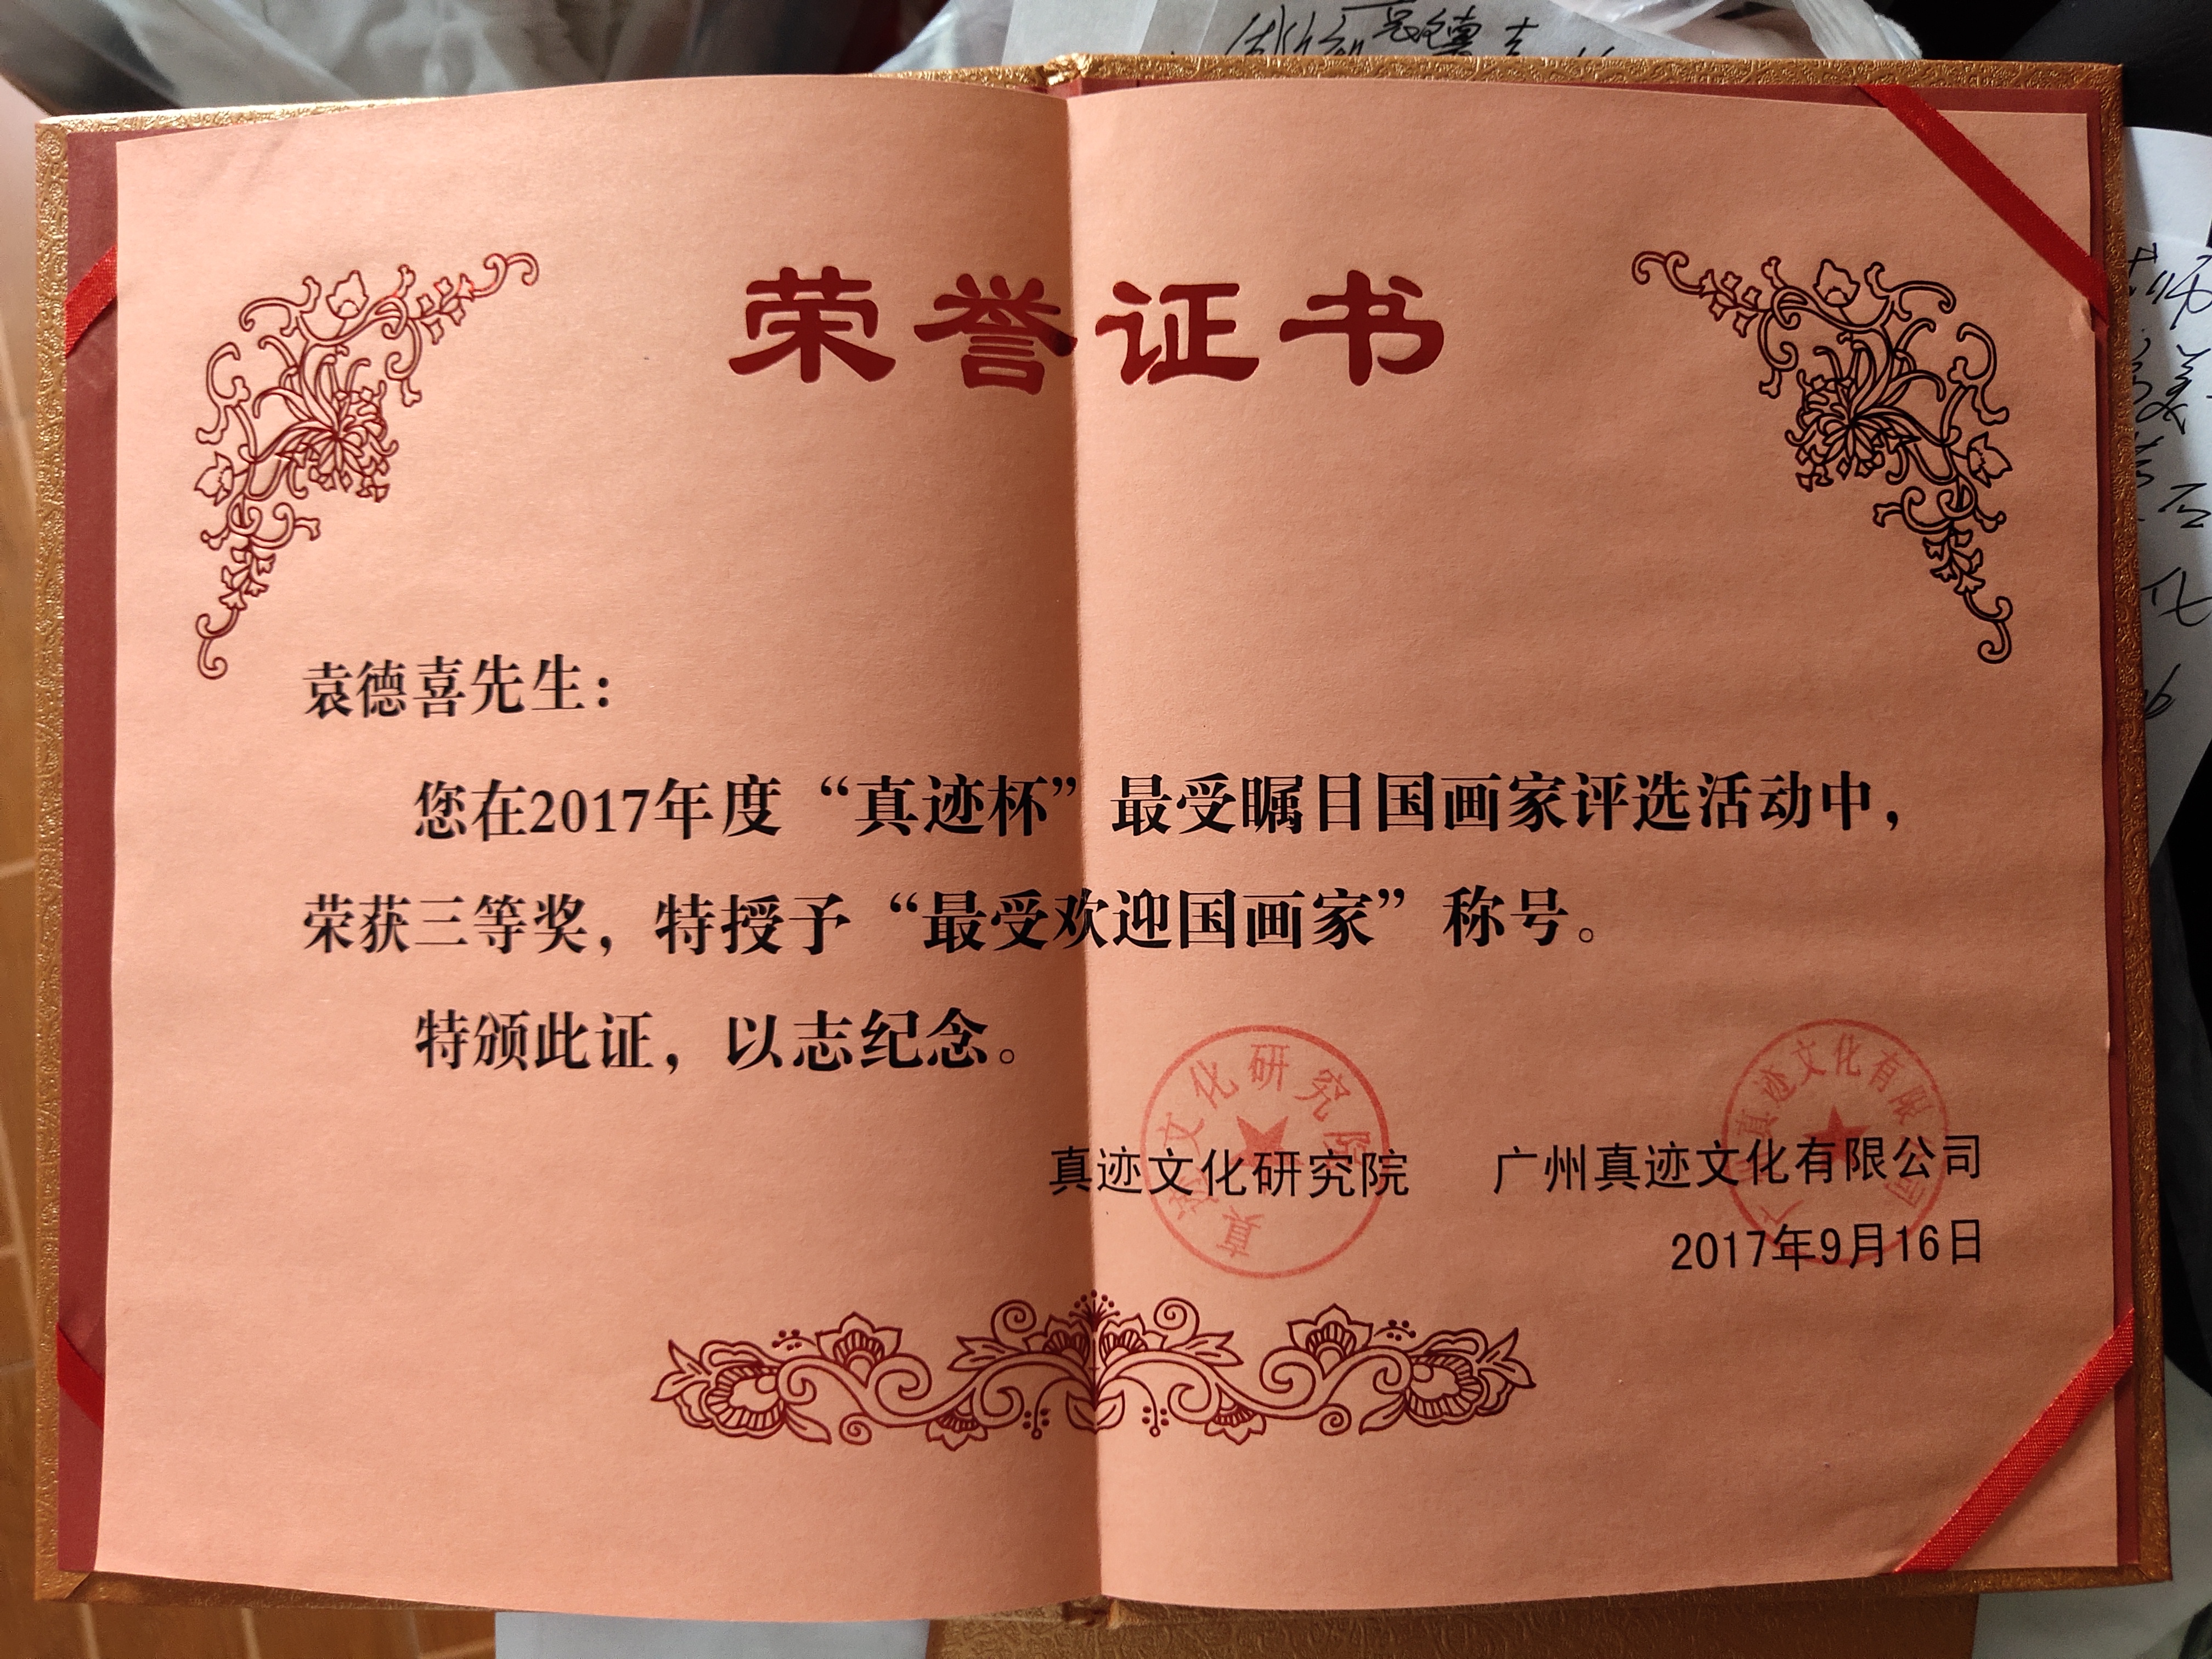 荣誉证书
袁德喜先生：
您在2017年度“真迹杯”最受瞩目国画家评选活动中，
荣获三等奖，特授予“最受欢迎国画家”称号。
特颁此证，以志纪念。
真迹文化研究院
广州真迹文化有限公司
2017年9月16日
真迹文化研究院
广州真迹文化有限公司